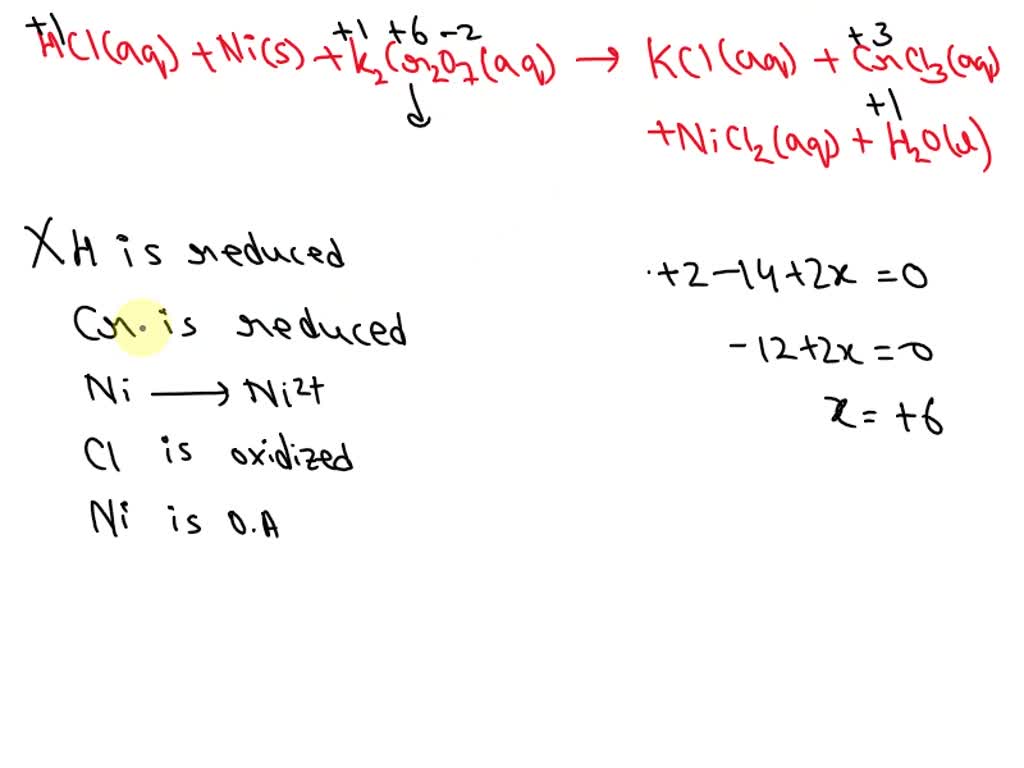 +1 +1 +6 -2 +3
HCl(aq) + Ni(s) + K2Cr2O7(aq) → KCl(aq) + CrCl3(aq)
+1
+NiCl2(aq) + H2O(l)
X H is reduced
Cr is reduced
Ni → Ni2+
Cl is oxidized
Ni is O.A
+2-14+2x=0
-12+2x=0
x=+6